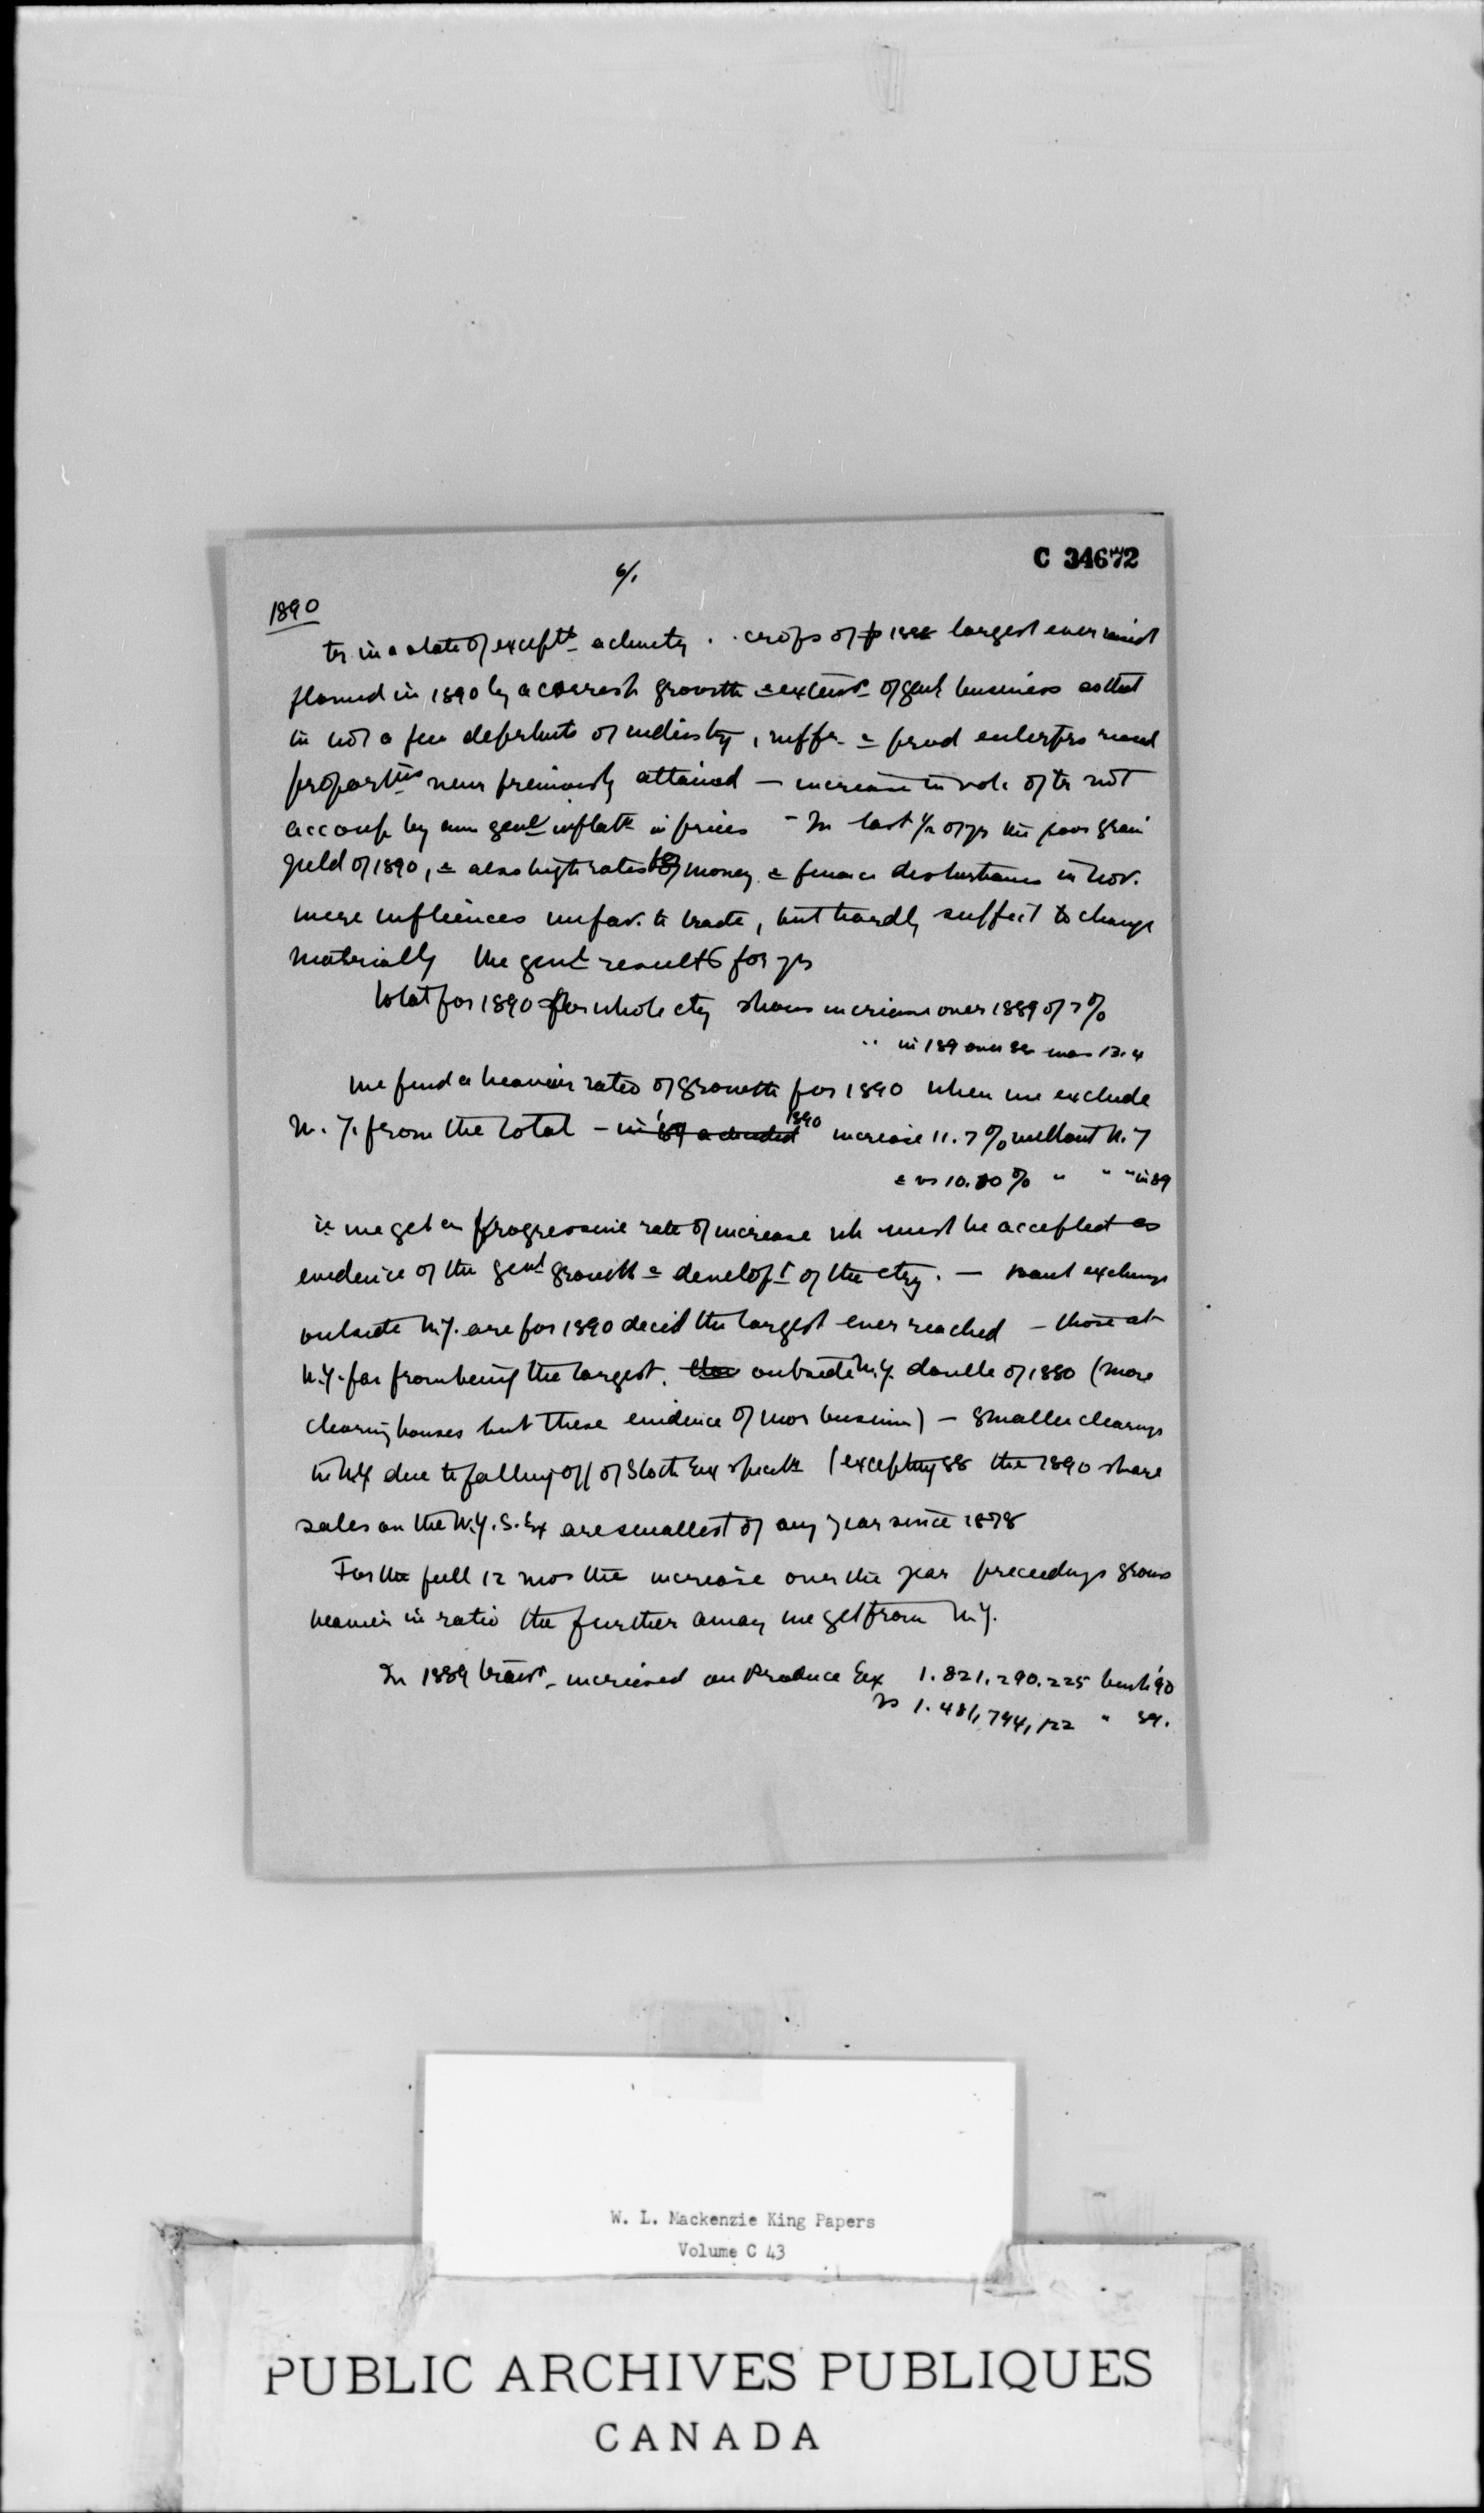 C 34672
6/.
1890
tr in a state of exceptl activity . . crops of 1889 largest ever raised
flowed in 1890 by a corresp growth & extens of genl business so that
in not a few departmts of industry, & prod enterprs reached
proportns never previously attained — increase in vol. of tr not
accomp by any genl inflatn in prices - In last 1/2 of yr the poor grain
yield of 1890, & also high rates of money & financ disturbances in Nov.
were influences unfav. to trade, but hardly suffict to change
materially the genl results for yr
total for 1890 for whole cty shows increase over 1889 of 7%
" in 189 over 88 was 13.4
we find a heavier ratio of growth for 1890 when we exclude
N.Y. from the total - in 1890 increase 11.7% without N.Y
& vs 10.80% " " " in 89
ie we get a progressive rate of increase wh must be accepted as
evidence of the genl growth & developt of the ctry. — bank exchngs
outside N.Y. are for 1890 decid the largest ever reached — those at
N.Y. far from being the largest. outside N.Y. double of 1880 (more
clearing houses but these evidence of mor business) - smaller clearngs
in N.Y due to falling off of Stock Ex specultn (excepting 88 the 1890 share
sales on the N.Y. S. Ex are smallest of any year since 1878
For the full 12 mos the increase over the year preceedings grows
heavier in ratio the further away we get from N.Y.
In 1889 trans. increased on Produce Ex 1.821.290.225 bush '90
vs 1.481,794,122 " 89.
W. L. Mackenzie King Papers
Volume C 43
PUBLIC ARCHIVES PUBLIQUES
CANADA